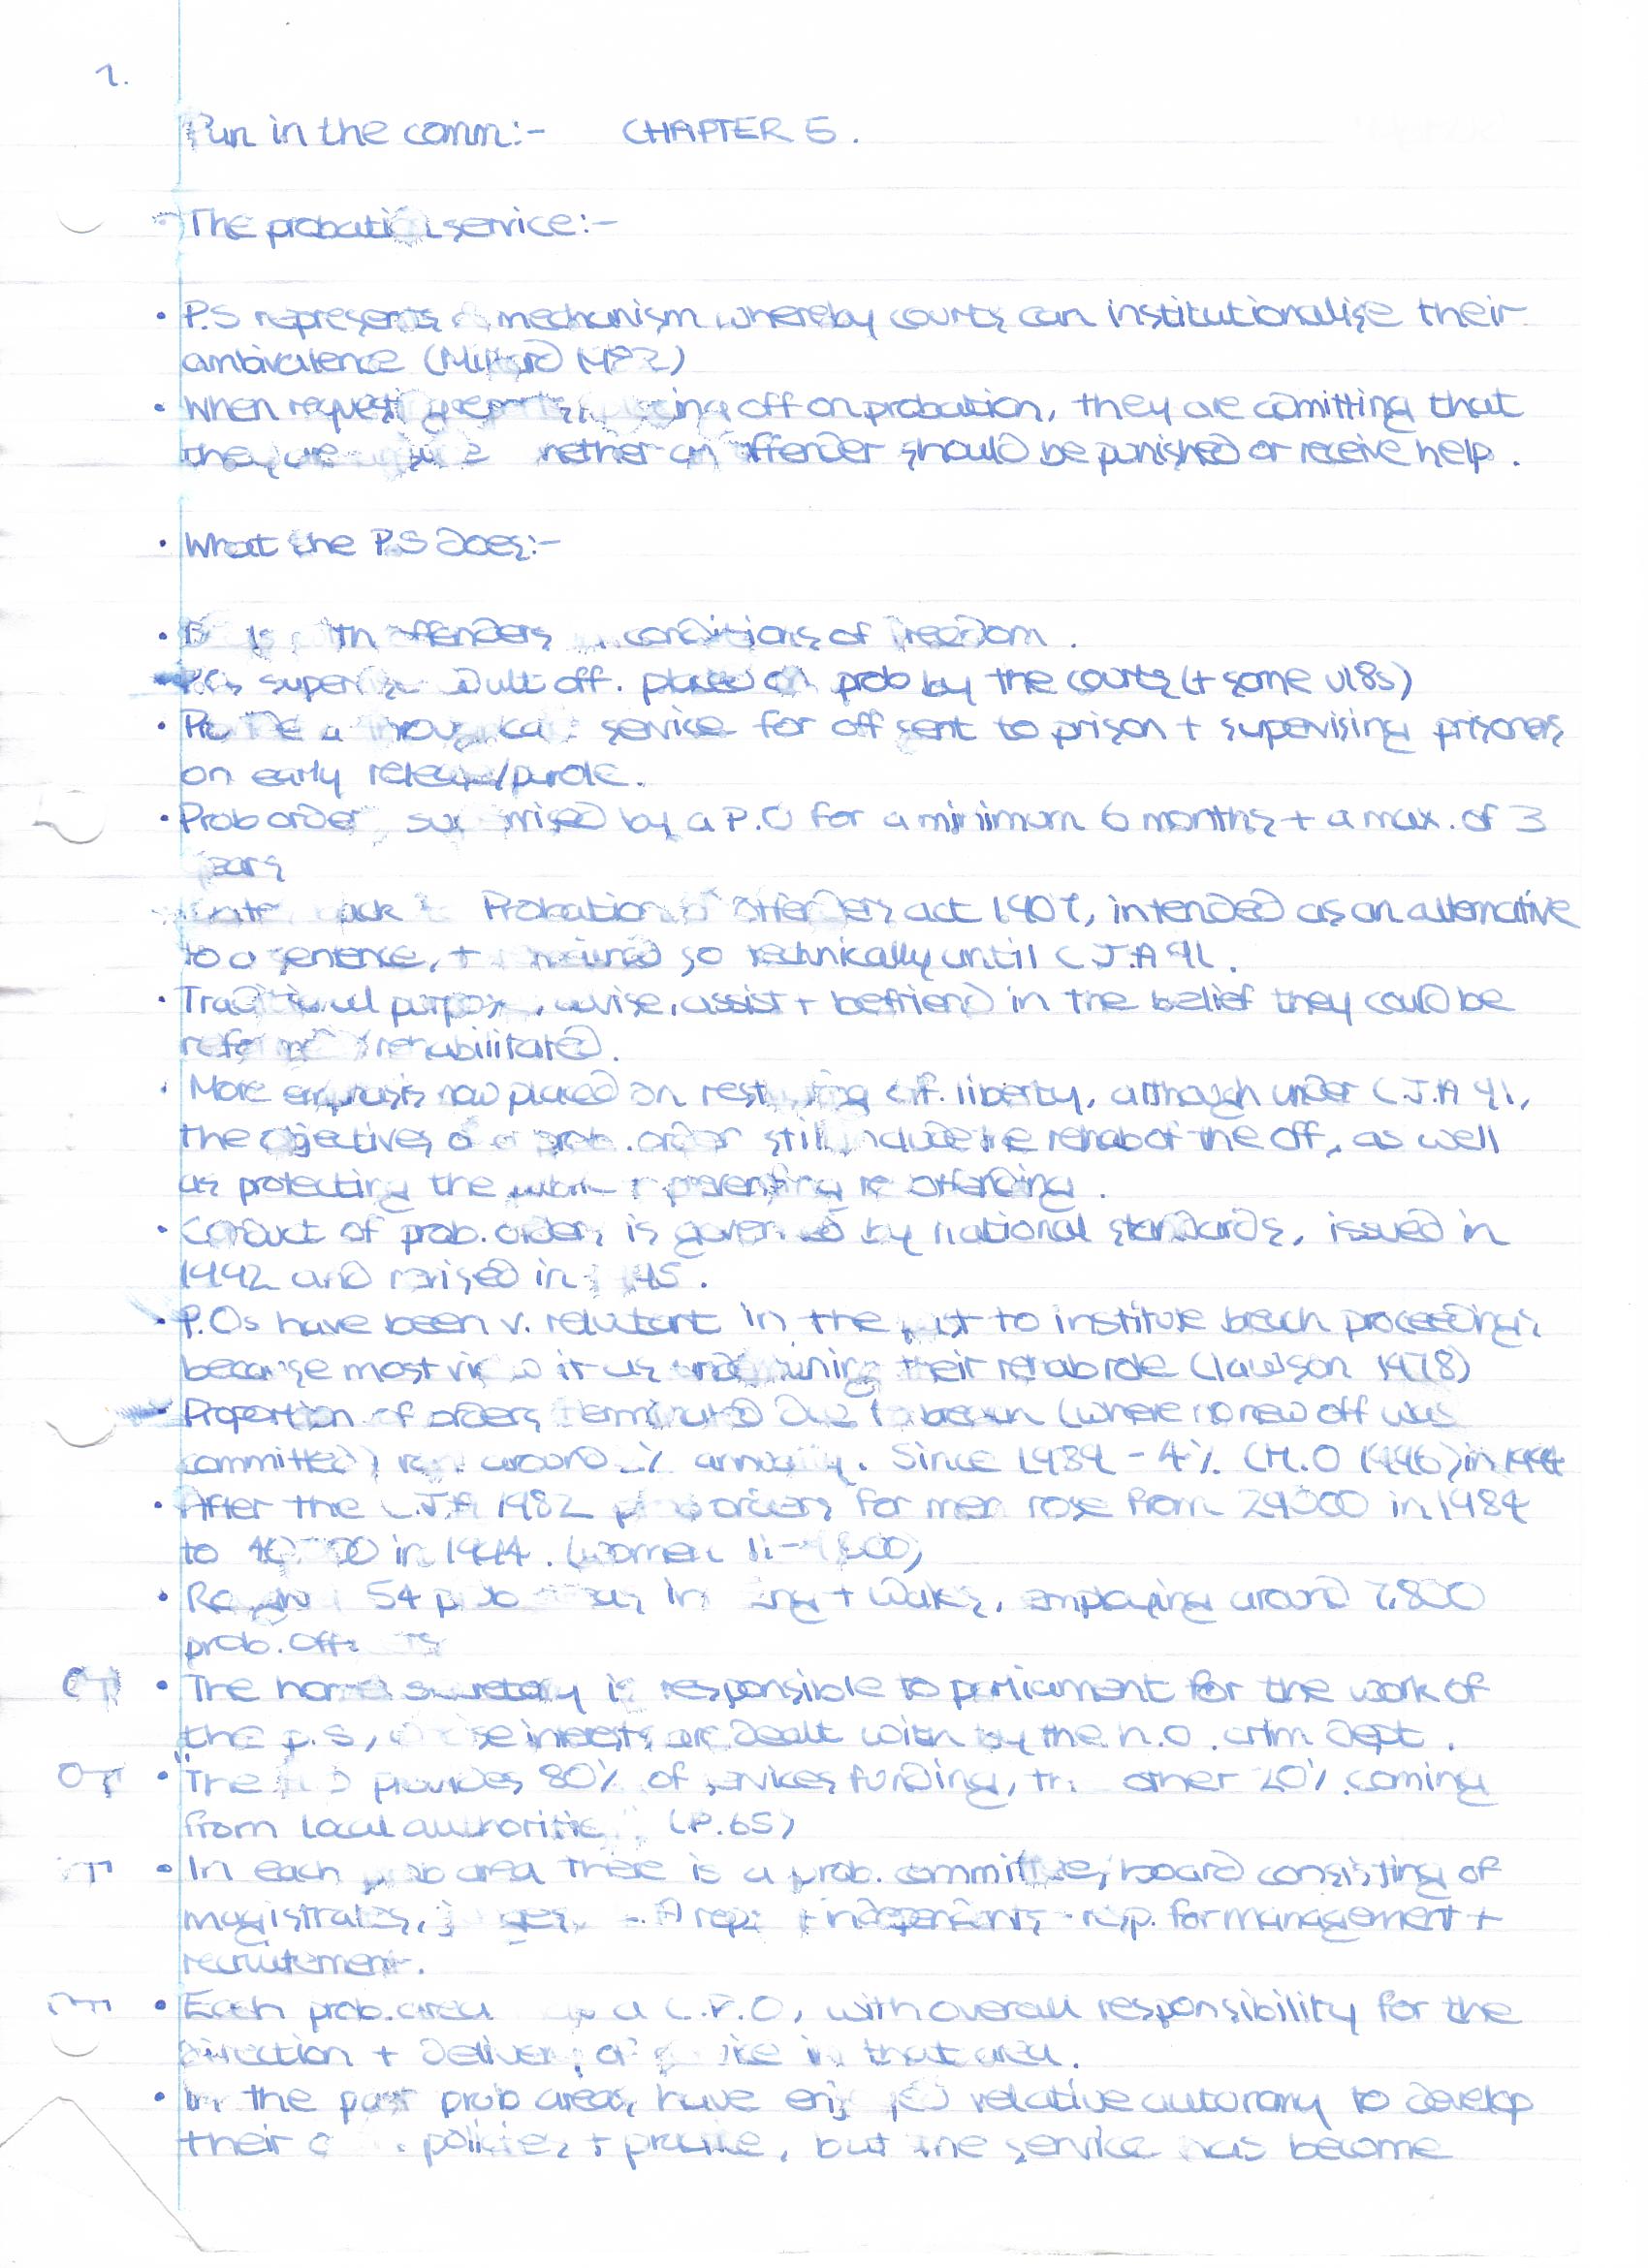 1.
Pun in the comm:- CHAPTER 5.
• The probation service:-
• P.S represents a mechanism whereby courts can institutionalise their
ambivalence (Millard 1982)
• When requesting reports, placing off on probation, they are admitting that
they are whether an offender should be punished or receive help.
• What the P.S does:-
• with offenders in conditions of freedom.
• P.Os supervise adult off. placed on prob by the courts (+ some u18s)
• Provide a throughcare service for off sent to prison + supervising prisoners
on early release/parole.
• Prob order supervised by a P.O for a minimum 6 months + a max. of 3
years
back Probation of offenders act 1907, intended as an alternative
to a sentence, + remained so technically until C.J.A 91.
• Traditional purpose, advise, assist + befriend in the belief they could be
reformed/rehabilitated.
• More emphasis now placed on restricting off. liberty, although under C.J.A 91,
the objectives of a prob. order still include the rehab of the off, as well
as protecting the public + preventing re offending.
• Conduct of prob. orders is governed by national standards, issued in
1992 and revised in 1995.
• P.Os have been v. reluctant in the past to institute breach proceedings
because most view it as undermining their rehab role (Lawson 1978)
• Proportion of orders terminated due to breach (where no new off was
committed) ran around % annually. Since 1989 - 4% (H.O 1996) in 1994
• After the C.J.A 1982 prob orders for men rose from 29000 in 1984
to in 1994. (women
• 54 prob areas in Eng + Wales, employing around 7,800
prob. officers
• The home secretary is responsible to parliament for the work of
the p.s, whose interests are dealt with by the h.o. crim dept.
• "The H.O provides 80% of services funding, the other 20% coming
from local authorities" (P.65)
• In each prob area there is a prob. committee/board consisting of
magistrates, judges, L.A reps + independents - resp. for management +
recruitement.
• Each prob. area has a C.P.O, with overall responsibility for the
direction + delivery of service in that area.
• In the past prob areas have enjoyed relative autonomy to develop
their own policies + practice, but the service has become